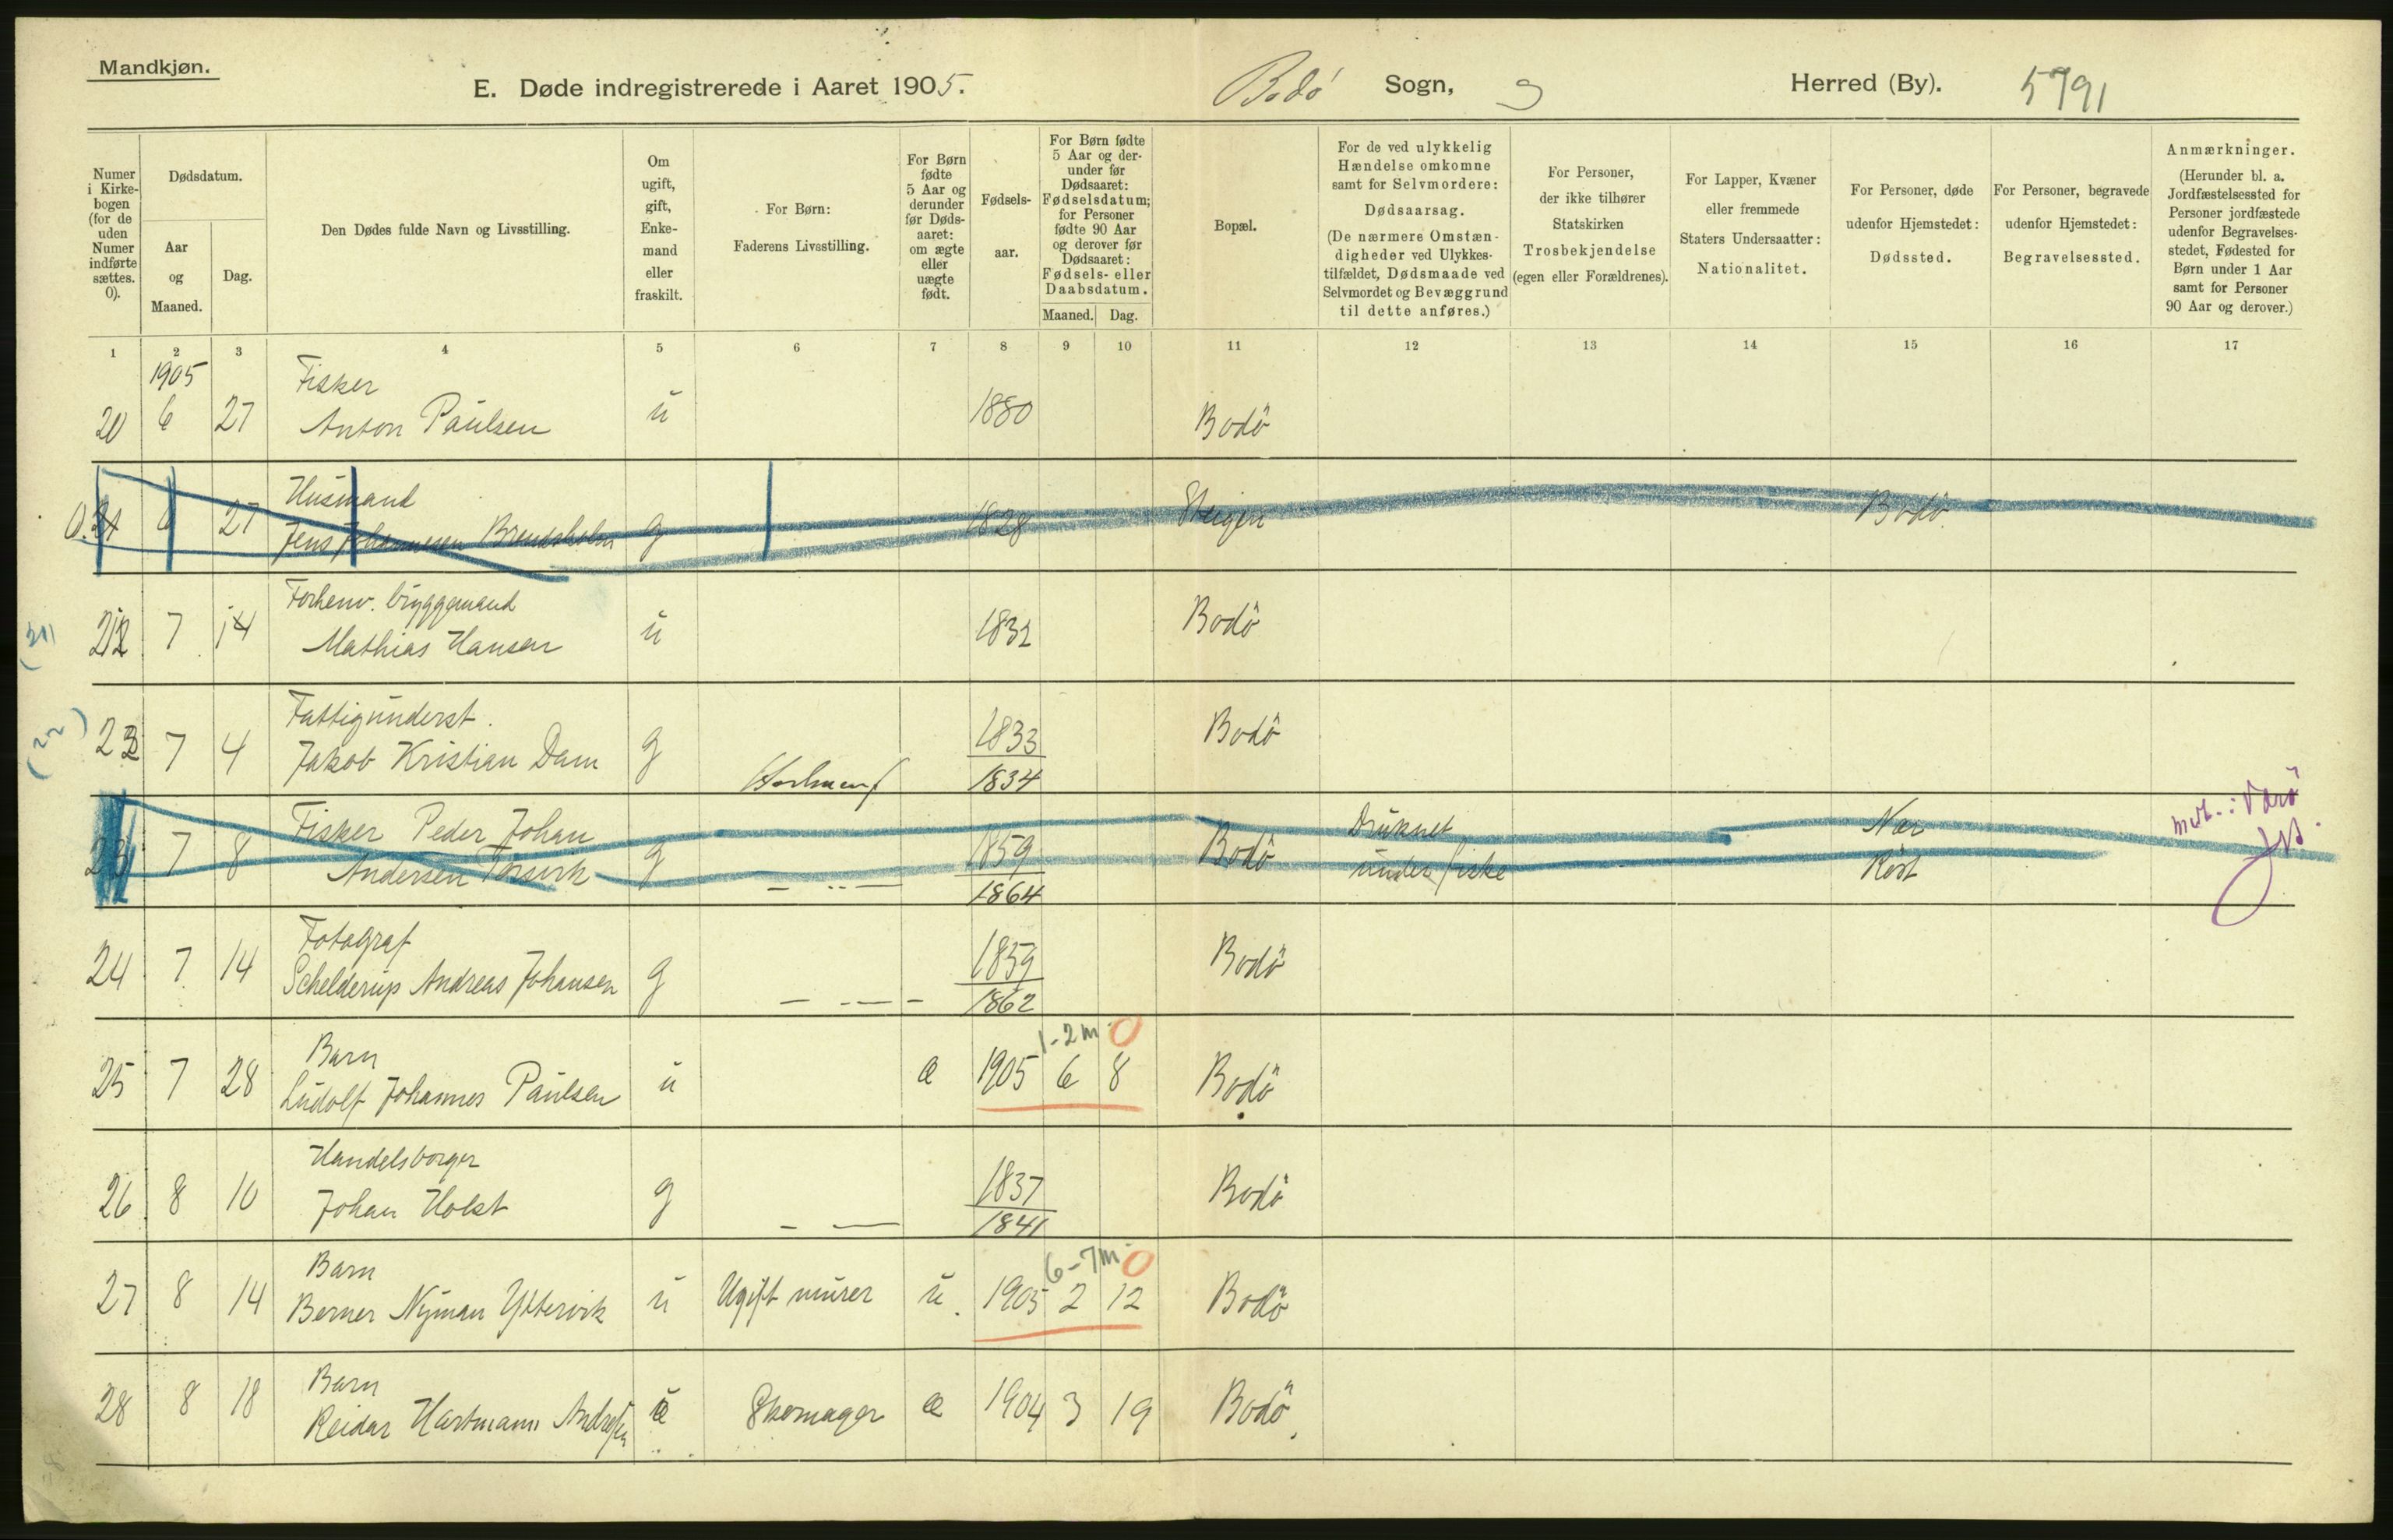 Mandkjøn.
E. Døde indregistrerede i Aaret 1905.
Bodö Sogn,
Herred (By).
5791
Numer i Kirke- bogen (for de uden Numer indførte sættes. 0).
Dødsdatum.
Aar og Maaned.
Dag.
Den Dødes fulde Navn og Livsstilling.
Om ugift, gift, Enke- mand eller fraskilt.
For Børn:
Faderens Livsstilling.
For Børn fødte 5 Aar og derunder før Døds- aaret: om ægte eller uægte født.
Fødsels- aar.
For Børn fødte 5 Aar og der- under før Dødsaaret: Fødselsdatum; for Personer fødte 90 Aar og derover før Dødsaaret: Fødsels- eller Daabsdatum.
Maaned. Dag.
Bopæl.
For de ved ulykkelig Hændelse omkomne samt for Selvmordere: Dødsaarsag. (De nærmere Omstæn- digheder ved Ulykkes- tilfældet, Dødsmaade ved Selvmordet og Bevæggrund til dette anføres.)
For Personer, der ikke tilhører Statskirken Trosbekjendelse (egen eller Forældrenes).
For Lapper, Kvæner eller fremmede Staters Undersaatter: Nationalitet.
For Personer, døde udenfor Hjemstedet: Dødssted.
For Personer, begravede udenfor Hjemstedet: Begravelsessted.
Anmærkninger. (Herunder bl. a. Jordfæstelsessted for Personer jordfæstede udenfor Begravelses- stedet, Fødested for Børn under 1 Aar samt for Personer 90 Aar og derover.)
1 2 3 4 5 6 7 8 9 10 11 12 13 14 15 16 17
1905
Fisker
20 6 27 Anton Paulsen ü 1880 Bodö
Husmand
27 Jens Johannesen g 1828 Steigen Bodö
Forhenv. bryggemand
7 14 Mathias Hansen ü 1832 Bodö
Fattigunderst.
7 4 Jakob Kristian Dam g 1833 Bodö
1834
Fisker Peder Johan Druknet Nær
23 7 8 Andersen g 1859 Bodö under fiske Röst
1864
Fotograf
24 7 14 Schelderup Andreas Johansen g 1859 Bodö
1862
Barn 1-2 m 0
25 7 28 Ludolf Johannes Paulsen ü æ 1905 6 8 Bodö
Handelsborger
26 8 10 Johan Holst g 1837 Bodö
1841
Barn 6-7 m 0
27 8 14 Berner Nyman Yttervik ü Ugift murer ü. 1905 2 12 Bodö
Barn
28 8 18 Reidar Hartmann ü Skomager æ 1904 3 19 Bodö